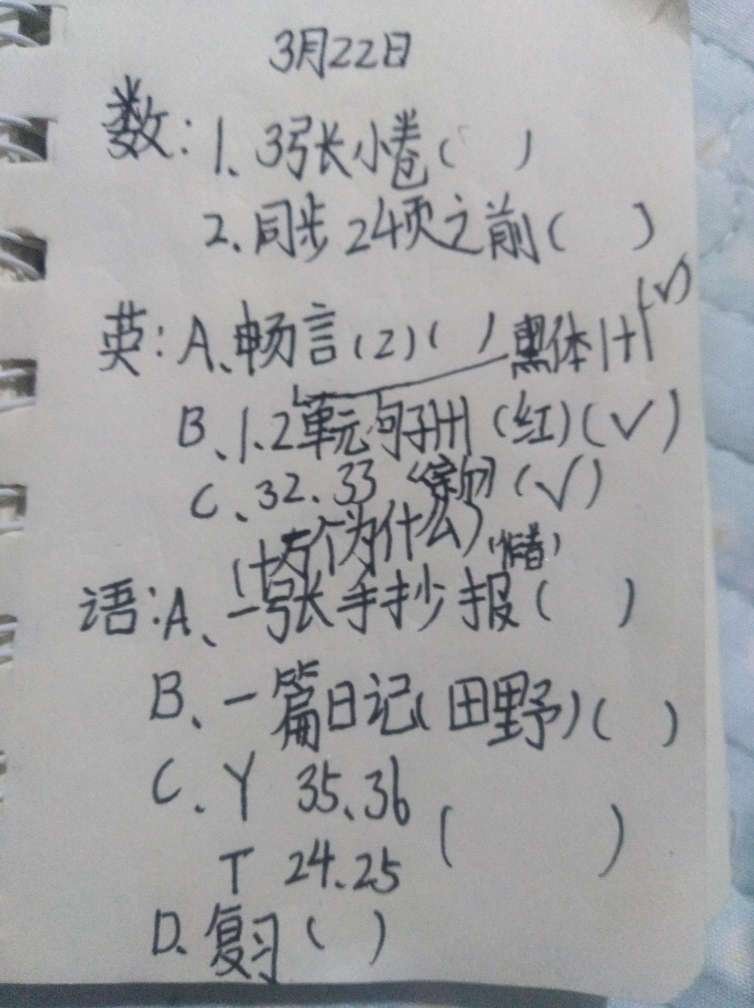 3月22日
数:1、3张小卷( )
2、同步24页之前( )
英:A、畅言(2)( )黑体1+1(√)
B、1.2单元句子卅(红)(√)
C、32、33(√)
(十万个为什么)(作者)
语:A、一张手抄报( )
B、一篇日记(田野)( )
C、Y 35、36
T 24、25( )
D、复习( )